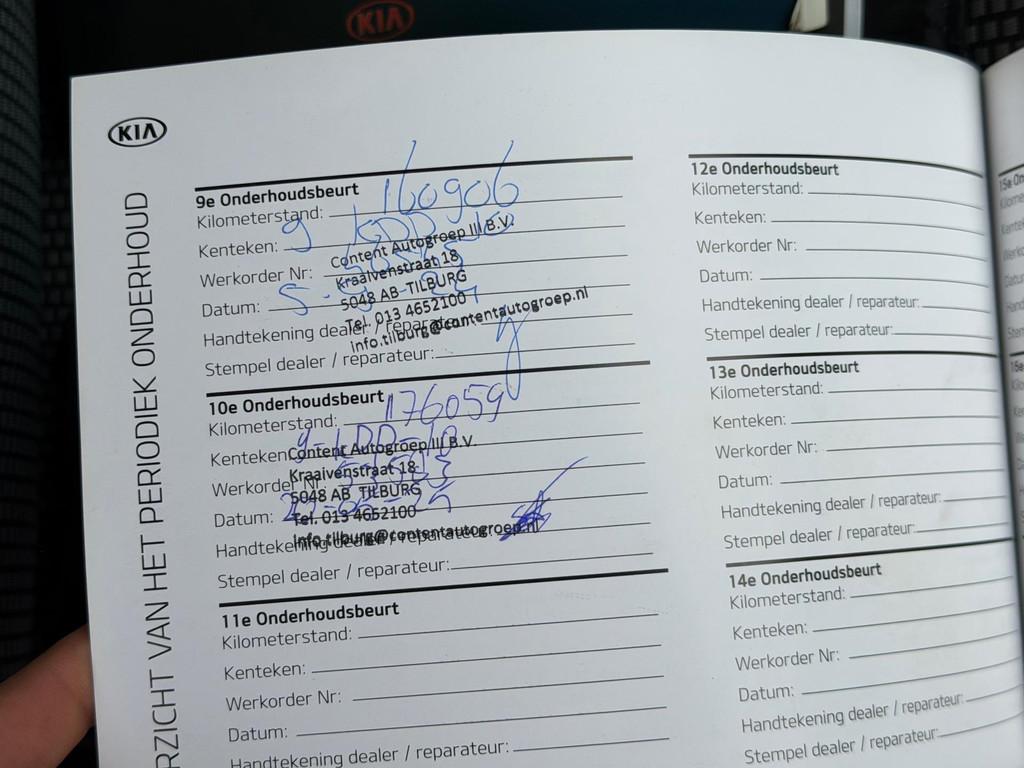 KIA
KIA
RZICHT VAN HET PERIODIEK ONDERHOUD
9e Onderhoudsbeurt
Kilometerstand: 160906
Kenteken: 9
Werkorder Nr:
Datum:
Handtekening dealer / reparateur:
Stempel dealer / reparateur:
Content Autogroep III B.V.
Kraaivenstraat 18
5048 AB TILBURG
Tel. 013 4652100
info.tilburg@contentautogroep.nl
10e Onderhoudsbeurt
Kilometerstand: 176059
Kenteken:
Werkorder Nr:
Datum:
Handtekening dealer / reparateur:
Stempel dealer / reparateur:
Content Autogroep III B.V.
Kraaivenstraat 18
5048 AB TILBURG
Tel. 013 4652100
info.tilburg@contentautogroep.nl
11e Onderhoudsbeurt
Kilometerstand:
Kenteken:
Werkorder Nr:
Datum:
Handtekening dealer / reparateur:
12e Onderhoudsbeurt
Kilometerstand:
Kenteken:
Werkorder Nr:
Datum:
Handtekening dealer / reparateur:
Stempel dealer / reparateur:
13e Onderhoudsbeurt
Kilometerstand:
Kenteken:
Werkorder Nr:
Datum:
Handtekening dealer / reparateur:
Stempel dealer / reparateur:
14e Onderhoudsbeurt
Kilometerstand:
Kenteken:
Werkorder Nr:
Datum:
Handtekening dealer / reparateur:
Stempel dealer / reparateur: